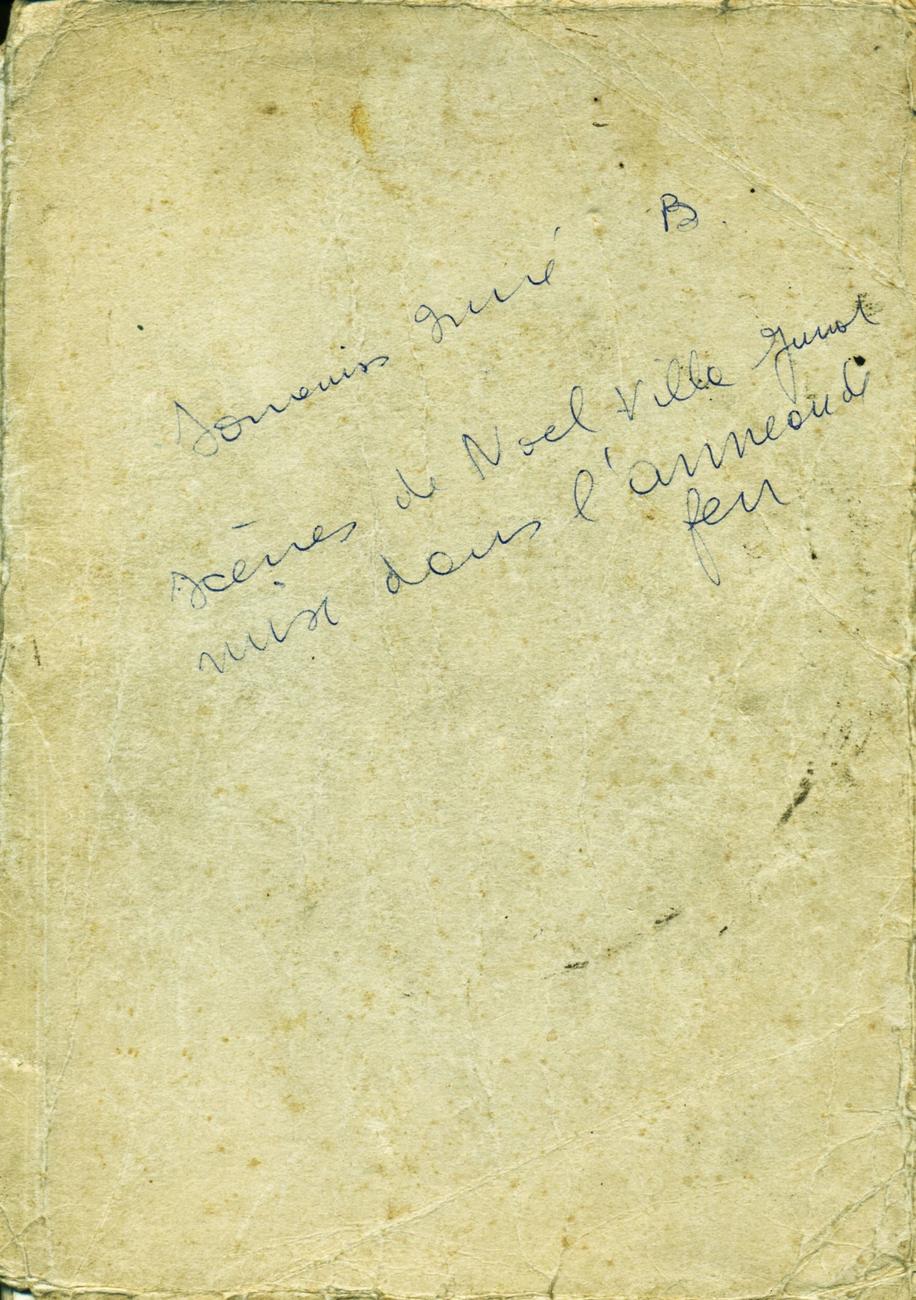 B.
Souvenirs Guité
Scènes de Noel Villa Junot
mise dans l'anneau d
feu